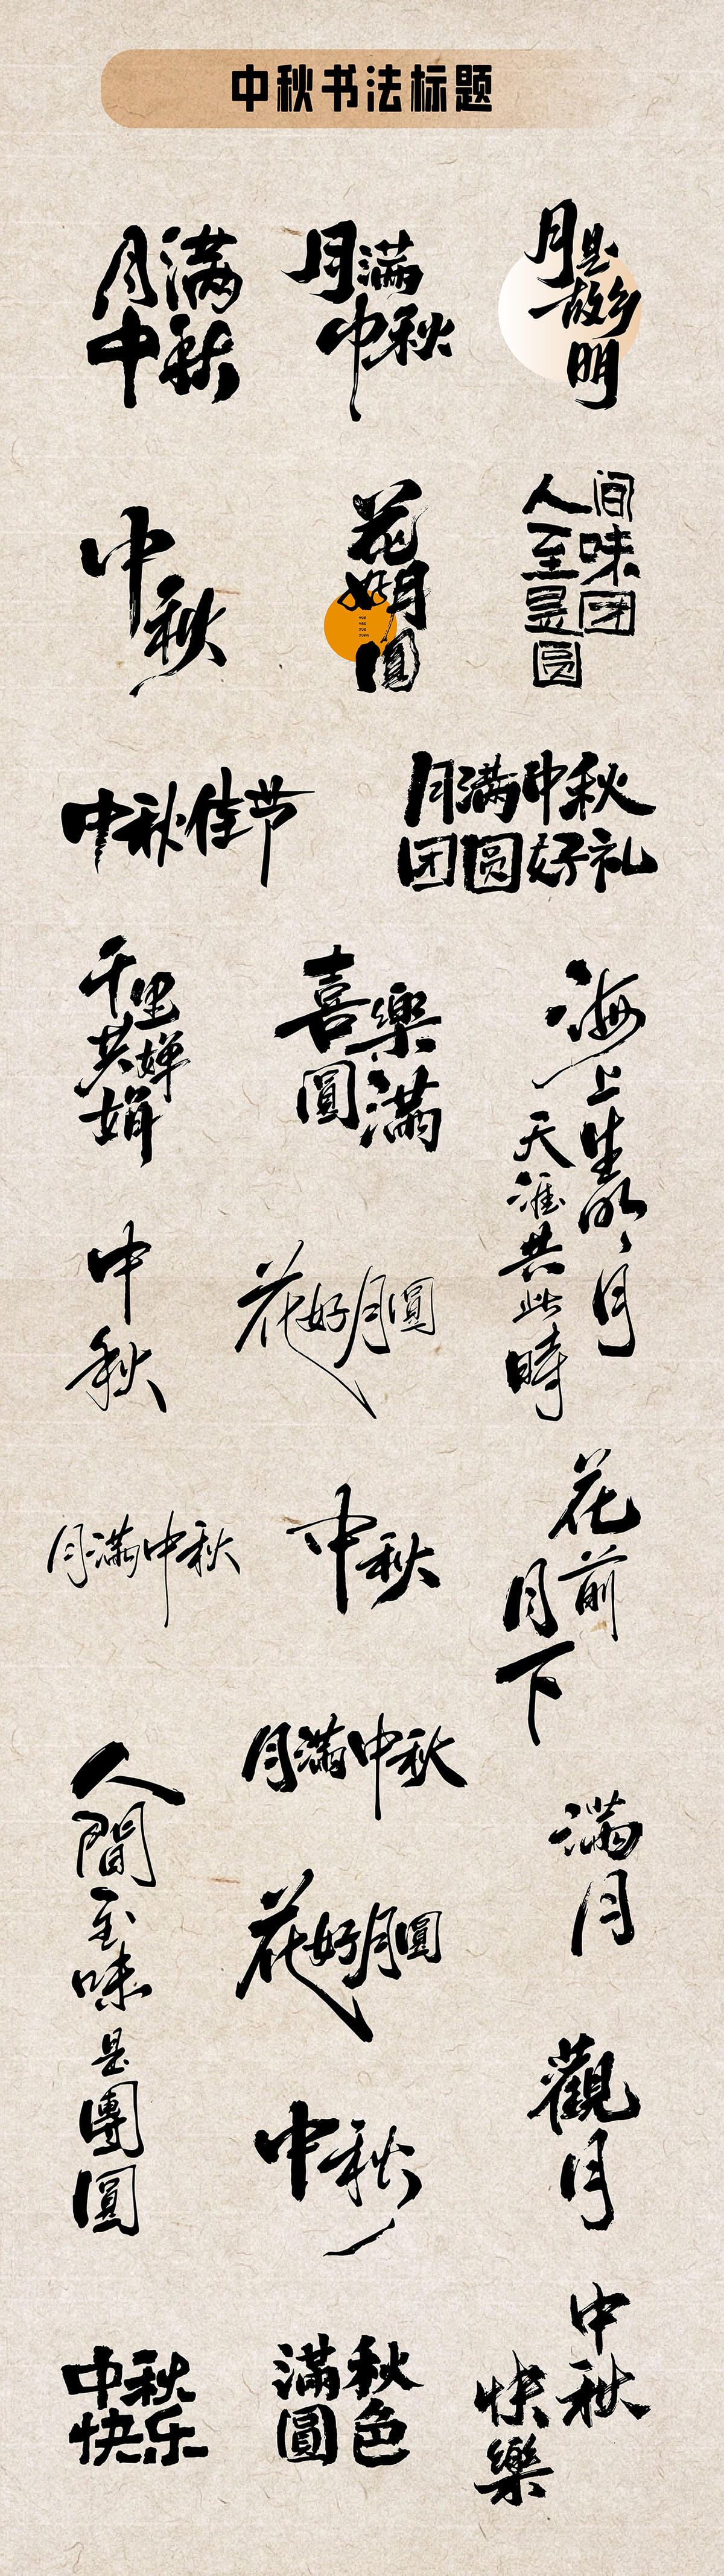 中秋书法标题
月满
中秋
月满
中秋
月是
故乡
明
中
秋
花
好月
圆
人间
至味
是团
圆
中秋佳节
月满中秋
团圆好礼
千里
共婵
娟
喜樂
圓滿
海上生明月
天涯共此時
中
秋
花好月圓
月满中秋
中秋
花前
月下
月滿中秋
人間至味是團圓
满月
花好月圓
中秋
觀月
中秋
快乐
秋色
滿圓
中秋
快樂